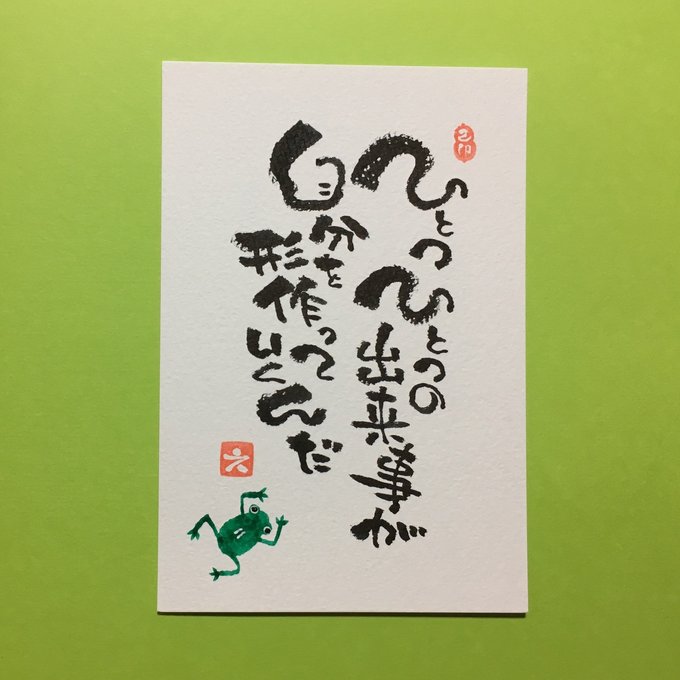 ひとつひとつの
出来事が
自分を
形作って
いくんだ
六